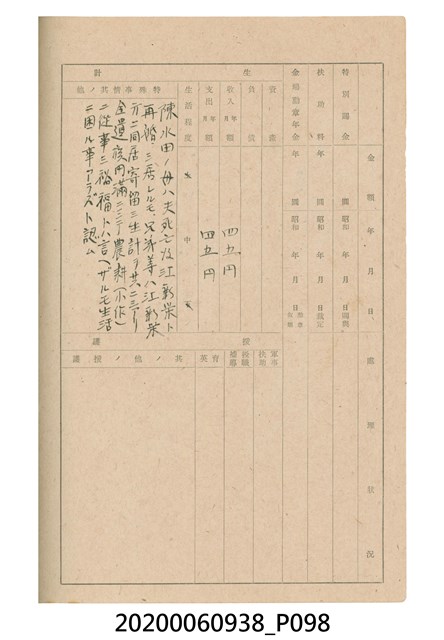 金額年月日
護歴狀況
特別賜金
圓
昭和年月日
扶助料
年
圓
昭和年月日
金鵄勳章年金
年
圓
昭和年月日
生計
資產
負債
收入
年月額
四五円
支出
年月額
四五円
生活程度
上
中
下
特殊事情其ノ他
陳水田ノ母ハ夫死亡後江新榮ト
再婚シ居レルモ兄弟等ハ江新榮
方ニ同居寄留シ生計ヲ共ニシアリ
全遺族円満ニシテ農耕(小作)
ニ從事シ裕福トハ言ヘザルモ生活
ニ困ル事アラズト認ム
援護
軍事扶助
育英
其ノ他ノ援護
20200060938_P098